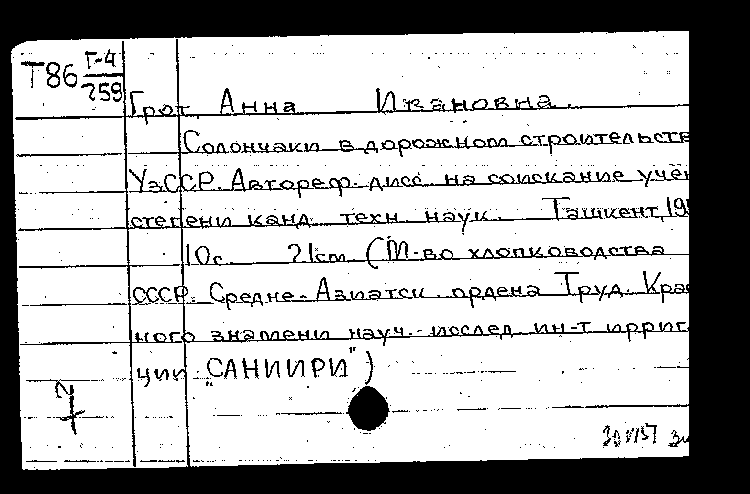 Т86 Г-4
259
Грот, Анна Ивановна.
Солончаки в дорожном строительств
УзССР. Автореф. дисс. на соискание учён
степени канд. техн. наук. Ташкент, 195
10с. 21см. (М-во хлопководства
СССР. Средне-Азиатск. ордена Труд. Крас
ного знамени науч.-исслед. ин-т ирриг
ции „САНИИРИ")